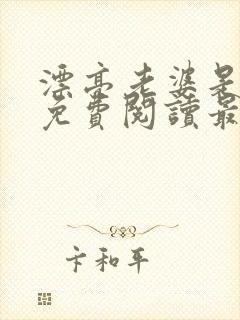 漂亮老婆是
免費閱讀最
卞和平